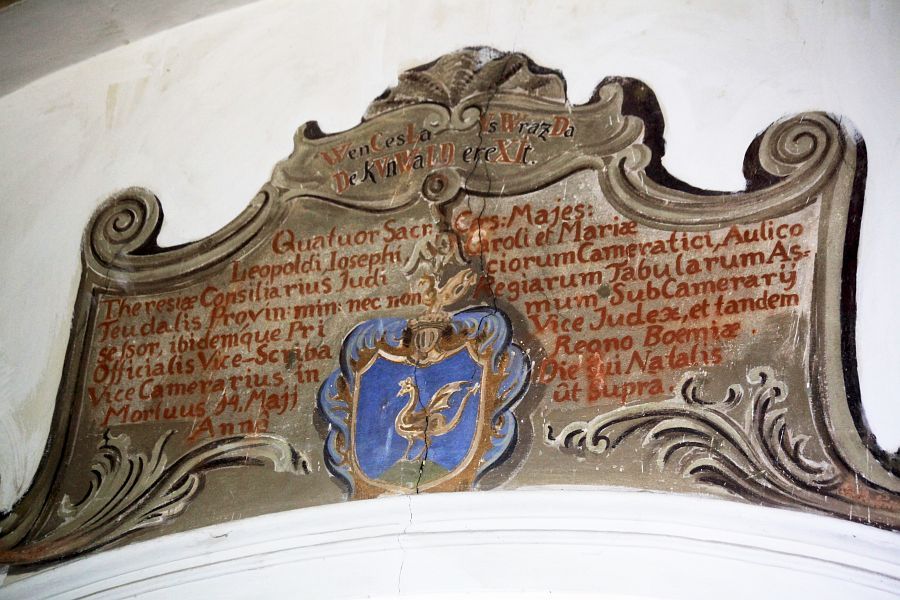 WenCesLaUs WrazDa
De KVnWaLD ereXIt.
Quatuor Sacr: Cæs: Majes:
Leopoldi Josephi Caroli et Mariæ
Theresiæ Consiliarius Judiciorum Cameratici, Aulico
Feudalis Provin: min: nec non Regiarum Tabularum As=
sessor, ibidemque Primum SubCamerarij
Officialis Vice-Scriba Vice Judex, et tandem
Vice Camerarius in Regno Boemiæ
Mortuus 14. Maji Die qui Natalis
Anno ût Supra